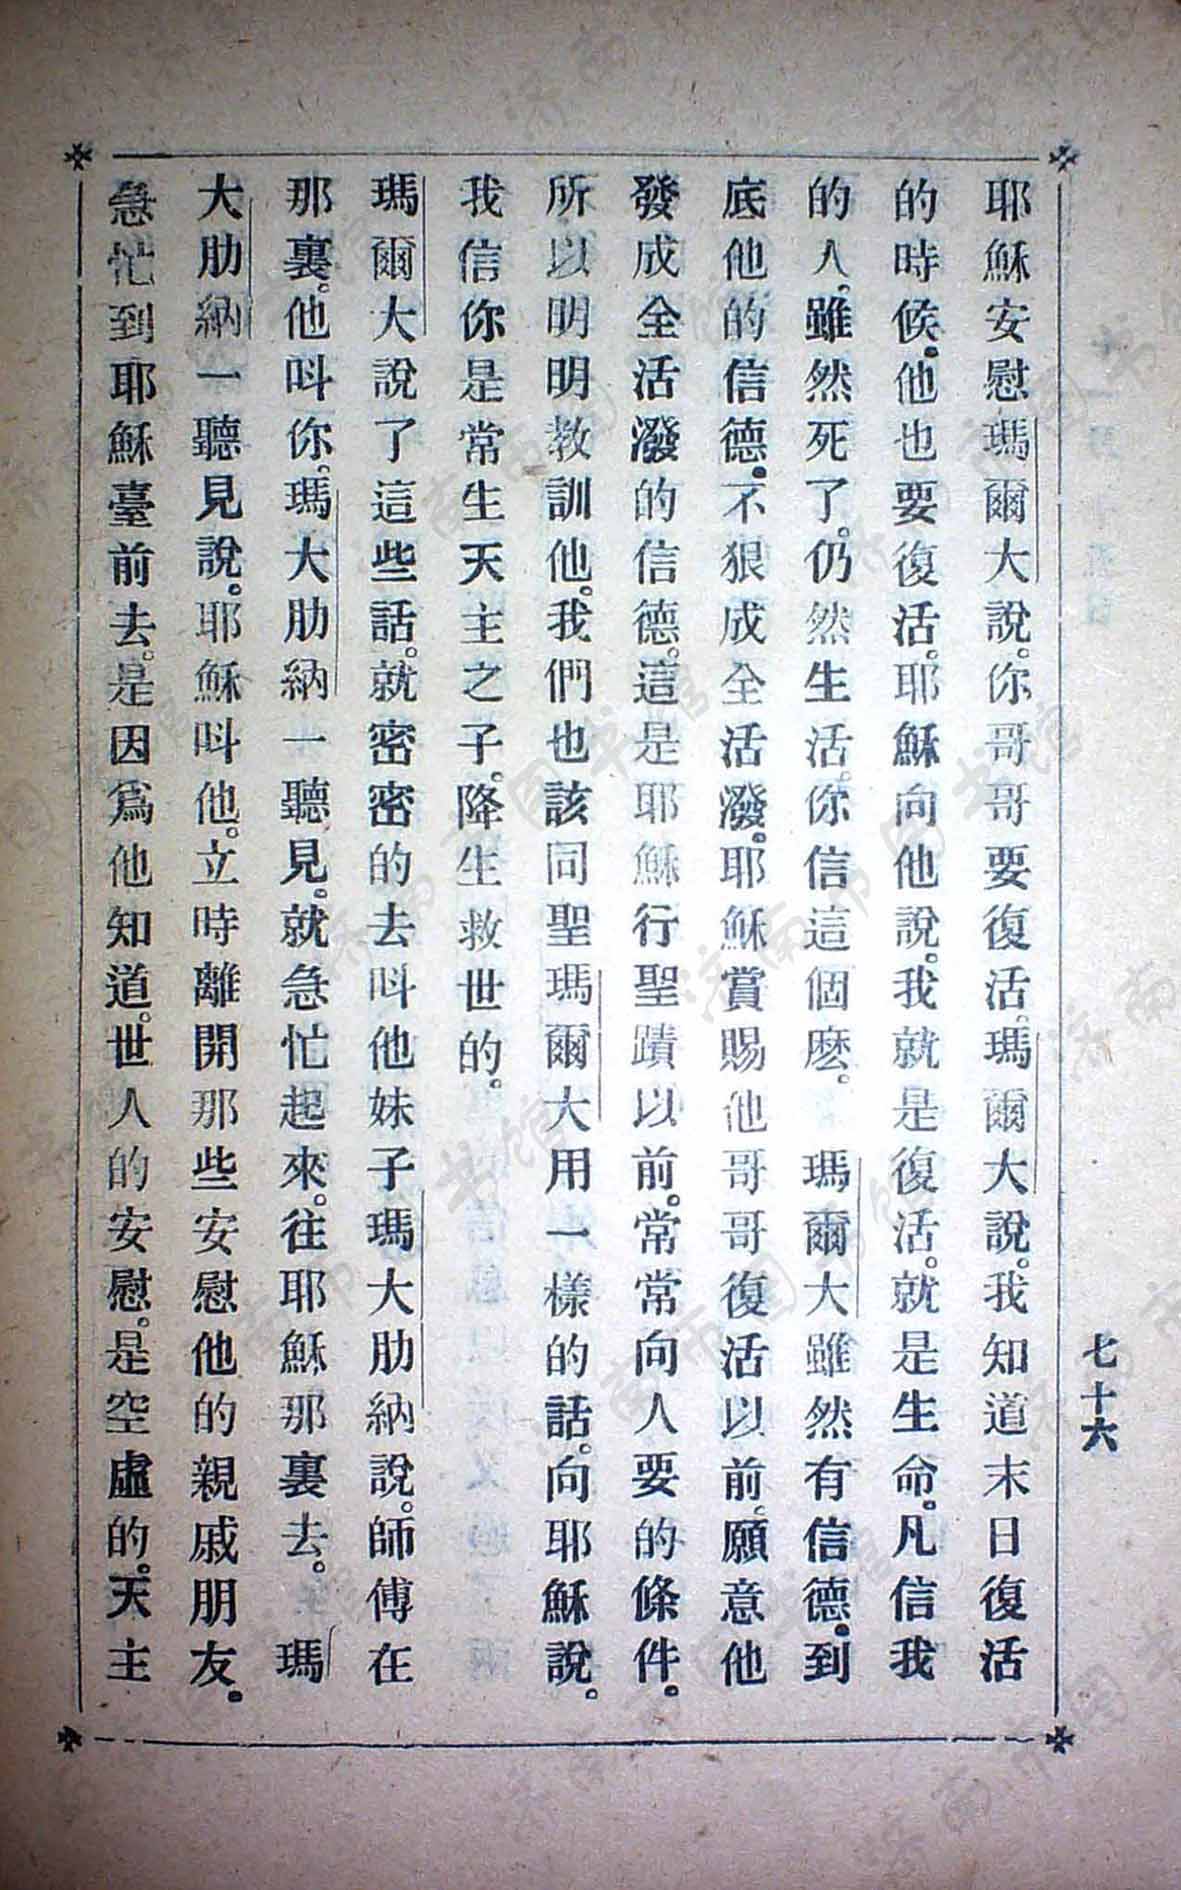 七十六
耶穌安慰瑪爾大說。你哥哥要復活。瑪爾大說。我知道末日復活
的時候。他也要復活。耶穌向他說。我就是復活。就是生命。凡信我
的人。雖然死了。仍然生活。你信這個麽。 瑪爾大雖然有信德。到
底他的信德。不狠成全活潑。耶穌賞賜他哥哥復活以前。願意他
發成全活潑的信德。這是耶穌行聖蹟以前。常常向人要的條件。
所以明明教訓他。我們也該同聖瑪爾大用一樣的話。向耶穌說。
我信你是常生天主之子。降生救世的。
瑪爾大說了這些話。就密密的去呌他妹子瑪大肋納說。師傅在
那裏。他呌你。瑪大肋納一聽見。就急忙起來。往耶穌那裏去。 瑪
大肋納一聽見說。耶穌呌他。立時離開那些安慰他的親戚朋友。
急忙到耶穌臺前去。是因爲他知道。世人的安慰。是空虛的。天主